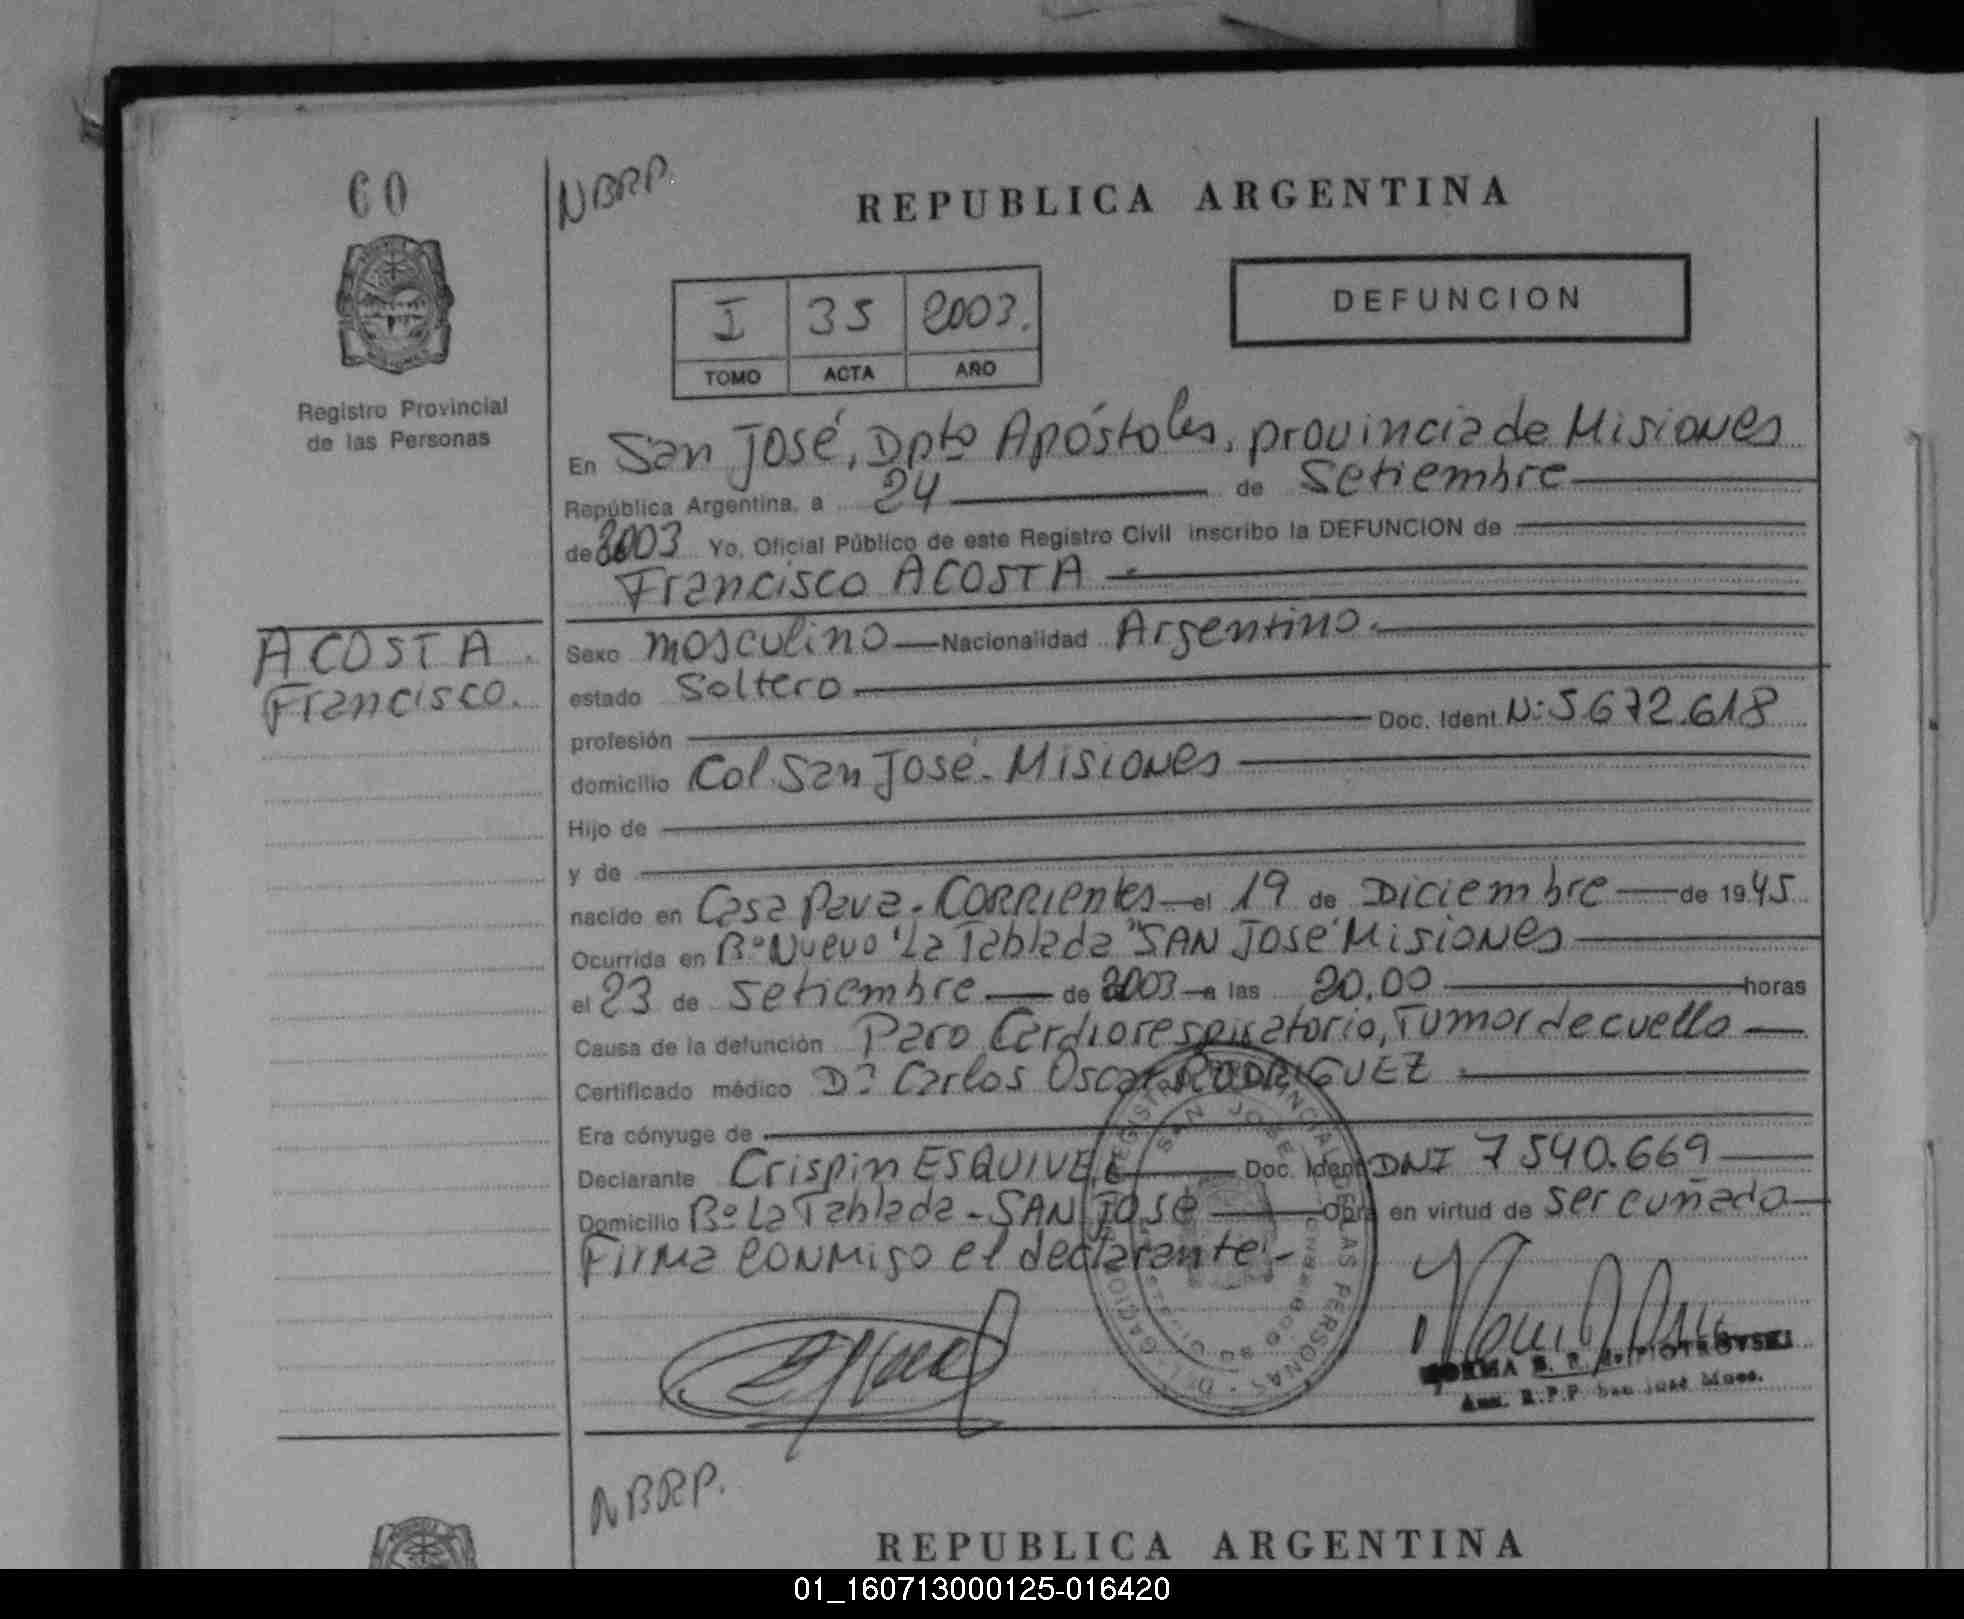 60
NBRP.
REPUBLICA ARGENTINA
I 35 2003.
TOMO ACTA AÑO
DEFUNCION
Registro Provincial
de las Personas
En San José, Dpto Apóstoles, provincia de Misiones
República Argentina, a 24 de Setiembre
de 2003 Yo, Oficial Público de este Registro Civil inscribo la DEFUNCION de
Francisco ACOSTA
ACOSTA.
Francisco.
Sexo masculino Nacionalidad Argentino.
estado Soltero
profesión Doc. Ident. Nº 5.672.618
domicilio Col. San José - Misiones
Hijo de
y de
nacido en Casa Pava - CORRIENTES el 19 de Diciembre de 1945
Ocurrida en Bº Nuevo "La Tablada" SAN José Misiones
el 23 de Setiembre de 2003 a las 20,00 horas
Causa de la defunción Paro Cardiorespiratorio, Tumor de cuello
Certificado médico Dr. Carlos Oscar RODRIGUEZ
Era cónyuge de
Declarante Crispin ESQUIVEL Doc. Ident. DNI 7540.669
Domicilio Bº La Tablada - SAN José Obra en virtud de ser cuñado
Firma conmigo el declarante.-
SAN JOSE
NORMA B. R. de PIOTROVSKI
R.P.P. San José Mnes.
NBRP.
REPUBLICA ARGENTINA
01_160713000125-016420